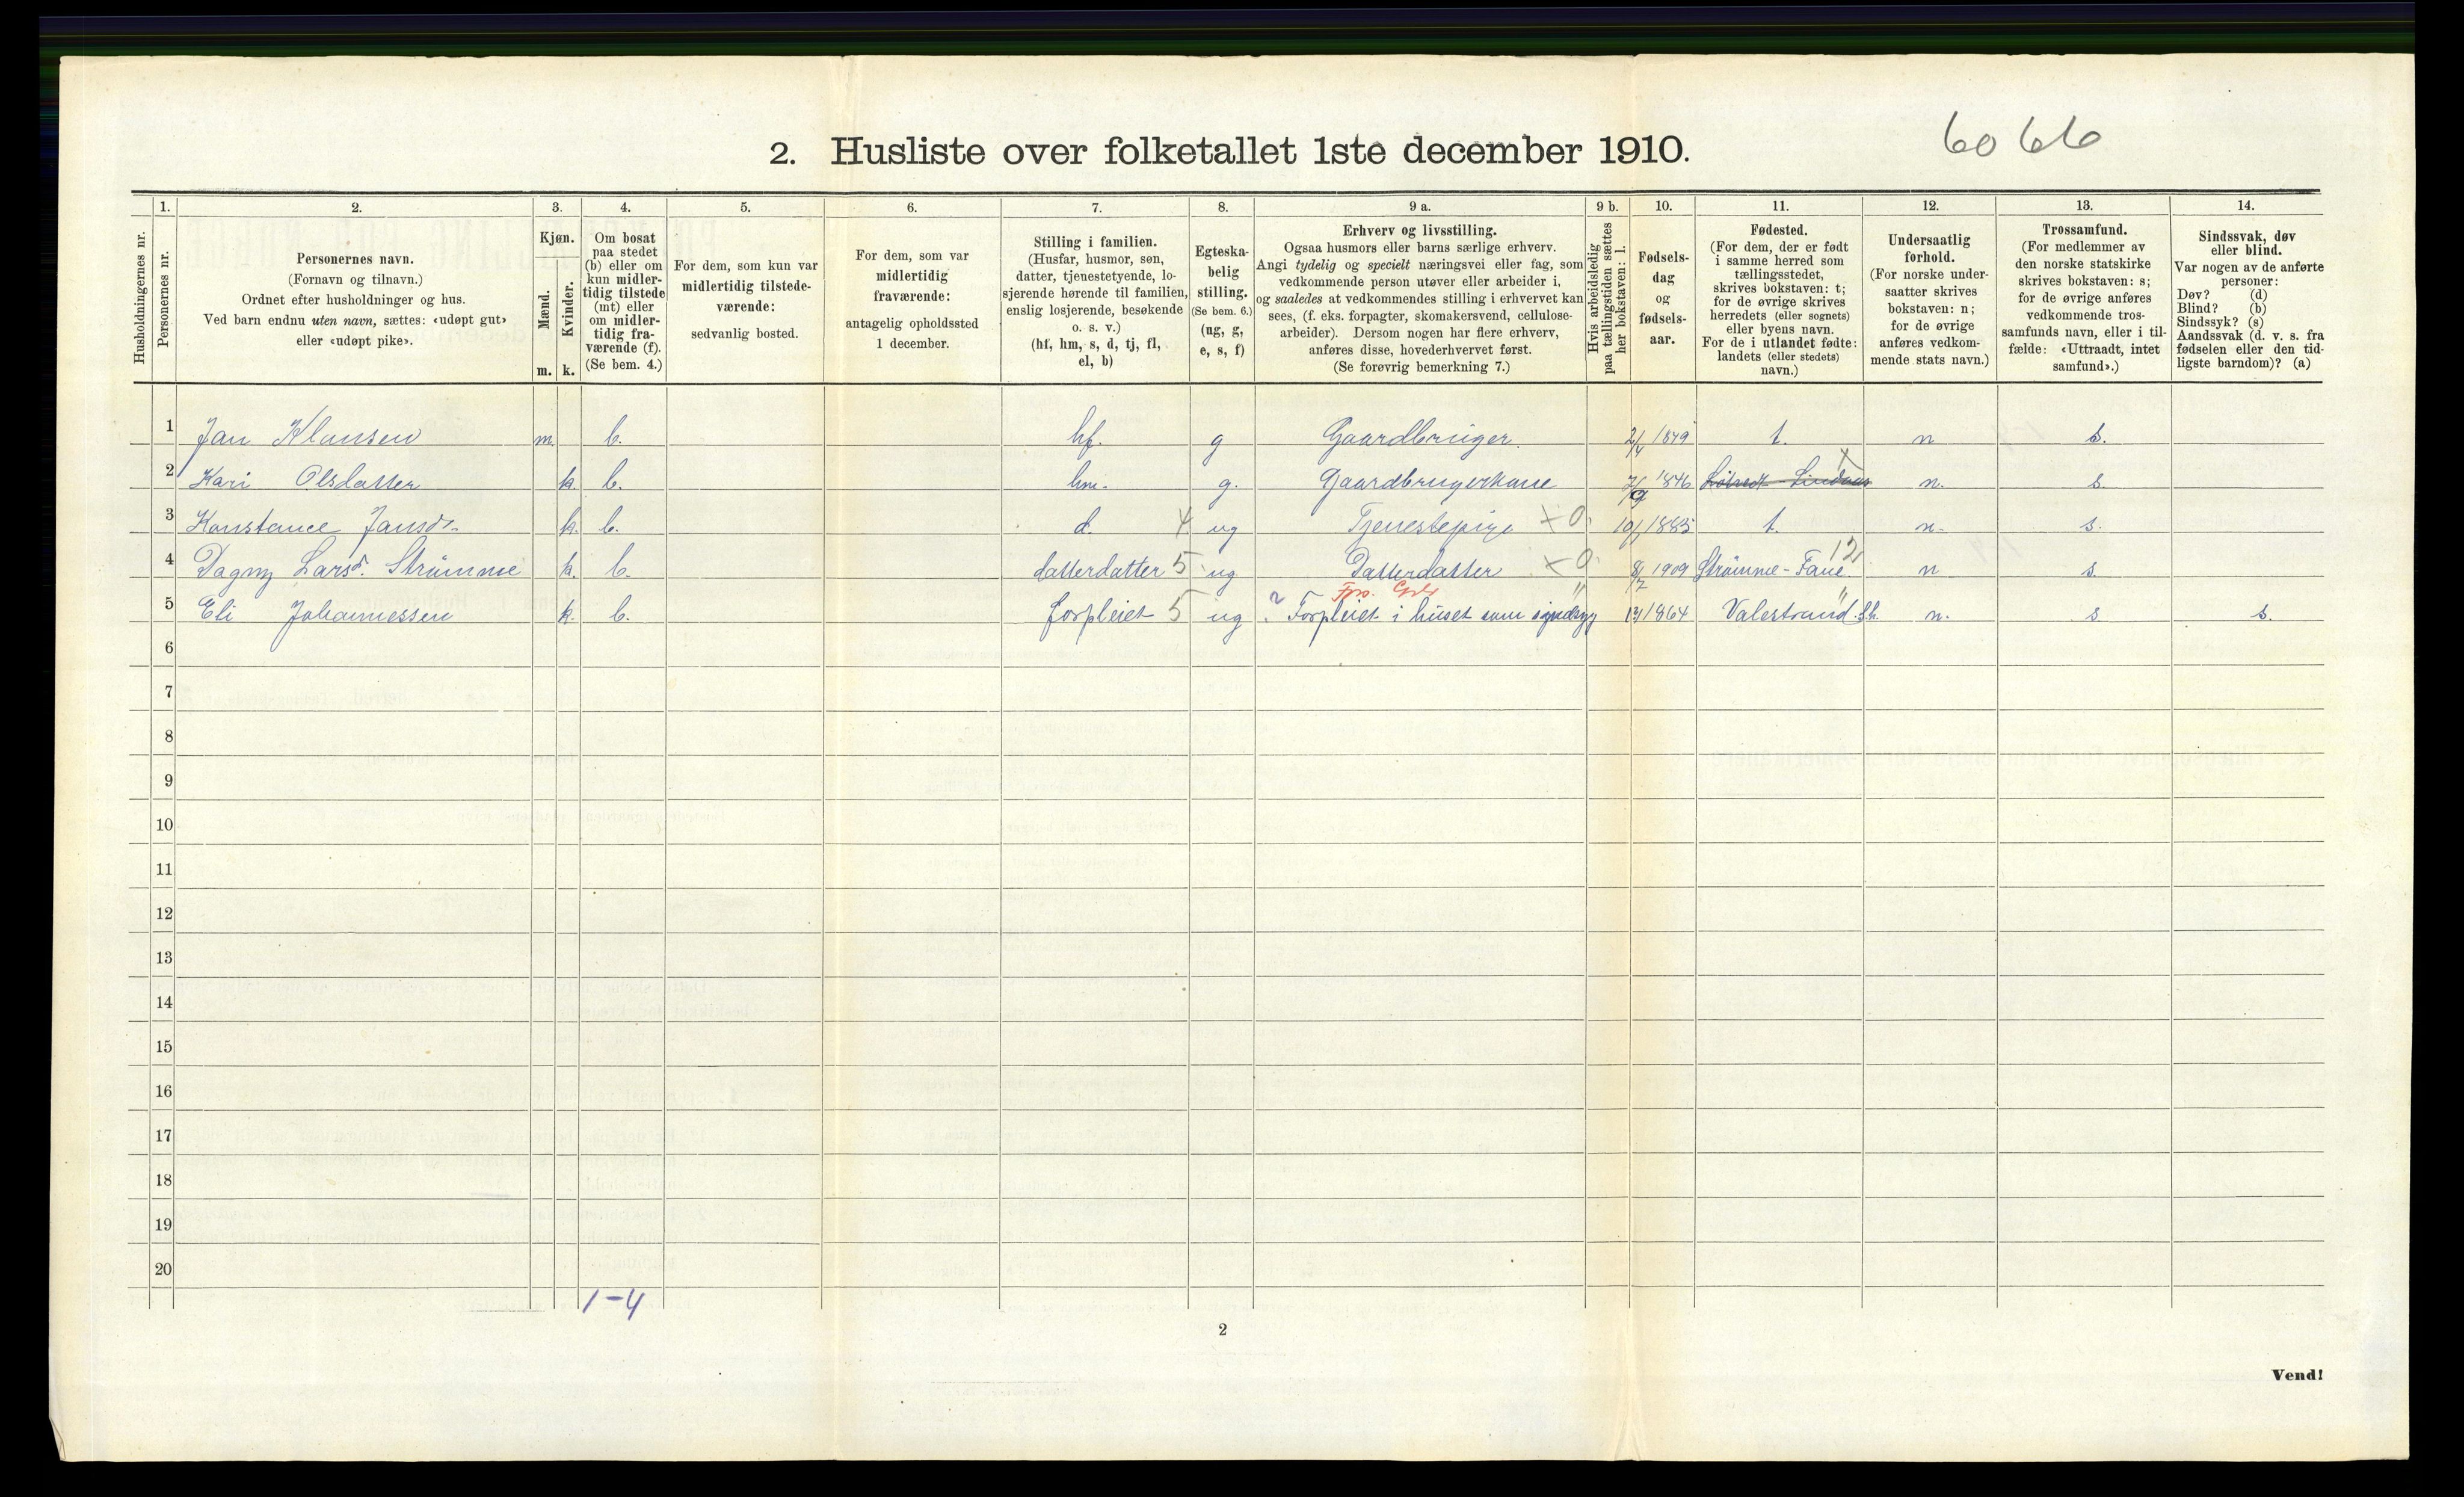 2. Husliste over folketallet 1ste december 1910.
6066
Husholdningernes nr.
1. Personernes nr.
2. Personernes navn.
(Fornavn og tilnavn.)
Ordnet efter husholdninger og hus.
Ved barn endnu uten navn, sættes: «udøpt gut»
eller «udøpt pike».
3. Kjøn.
Mænd. m.
Kvinder. k.
4. Om bosat
paa stedet
(b) eller om
kun midler-
tidig tilstede
(mt) eller
om midler-
tidig fra-
værende (f).
(Se bem. 4.)
5. For dem, som kun var
midlertidig tilstede-
værende:
sedvanlig bosted.
6. For dem, som var
midlertidig
fraværende:
antagelig opholdssted
1 december.
7. Stilling i familien.
(Husfar, husmor, søn,
datter, tjenestetyende, lo-
sjerende hørende til familien,
enslig losjerende, besøkende
o. s. v.)
(hf, hm, s, d, tj, fl,
el, b)
8. Egteska-
belig
stilling.
(Se bem. 6.)
(ug, g,
e, s, f)
9 a. Erhverv og livsstilling.
Ogsaa husmors eller barns særlige erhverv.
Angi tydelig og specielt næringsvei eller fag, som
vedkommende person utøver eller arbeider i,
og saaledes at vedkommendes stilling i erhvervet kan
sees, (f. eks. forpagter, skomakersvend, cellulose-
arbeider). Dersom nogen har flere erhverv,
anføres disse, hovederhvervet først.
(Se forøvrig bemerkning 7.)
9 b. Hvis arbeidsledig
paa tællingstiden sættes
her bokstaven: l.
10. Fødsels-
dag
og
fødsels-
aar.
11. Fødested.
(For dem, der er født
i samme herred som
tællingsstedet,
skrives bokstaven: t;
for de øvrige skrives
herredets (eller sognets)
eller byens navn.
For de i utlandet fødte:
landets (eller stedets)
navn.)
12. Undersaatlig
forhold.
(For norske under-
saatter skrives
bokstaven: n;
for de øvrige
anføres vedkom-
mende stats navn.)
13. Trossamfund.
(For medlemmer av
den norske statskirke
skrives bokstaven: s;
for de øvrige anføres
vedkommende tros-
samfunds navn, eller i til-
fælde: «Uttraadt, intet
samfund».)
14. Sindssvak, døv
eller blind.
Var nogen av de anførte
personer:
Døv? (d)
Blind? (b)
Sindssyk? (s)
Aandssvak (d. v. s. fra
fødselen eller den tid-
ligste barndom)? (a)
1 Jan Klausen m. b. hf. g Gaardbruger. 2/4 1849 t. n s.
2 Kari Olsdatter k. b. hm. g. Gaardbrugerkone 7/9 1846 Lindaas n. s.
3 Konstance Jansdr. k. b. d. 4 ug Tjenestepige x0 1885 t. n. s.
4 Dagny Larsd. Strømme k. b. datterdatter 5 ug Datterdatter x0 8/12 1909 Strømme-Fane 12 n s.
5 Eli Johannessen k. b. forpleiet 5 ug ? Forpleiet i huset som sindsyg 1864 Valestrand S.h. n. s s.
6
7
8
9
10
11
12
13
14
15
16
17
18
19
20
1-4
2
Vend!